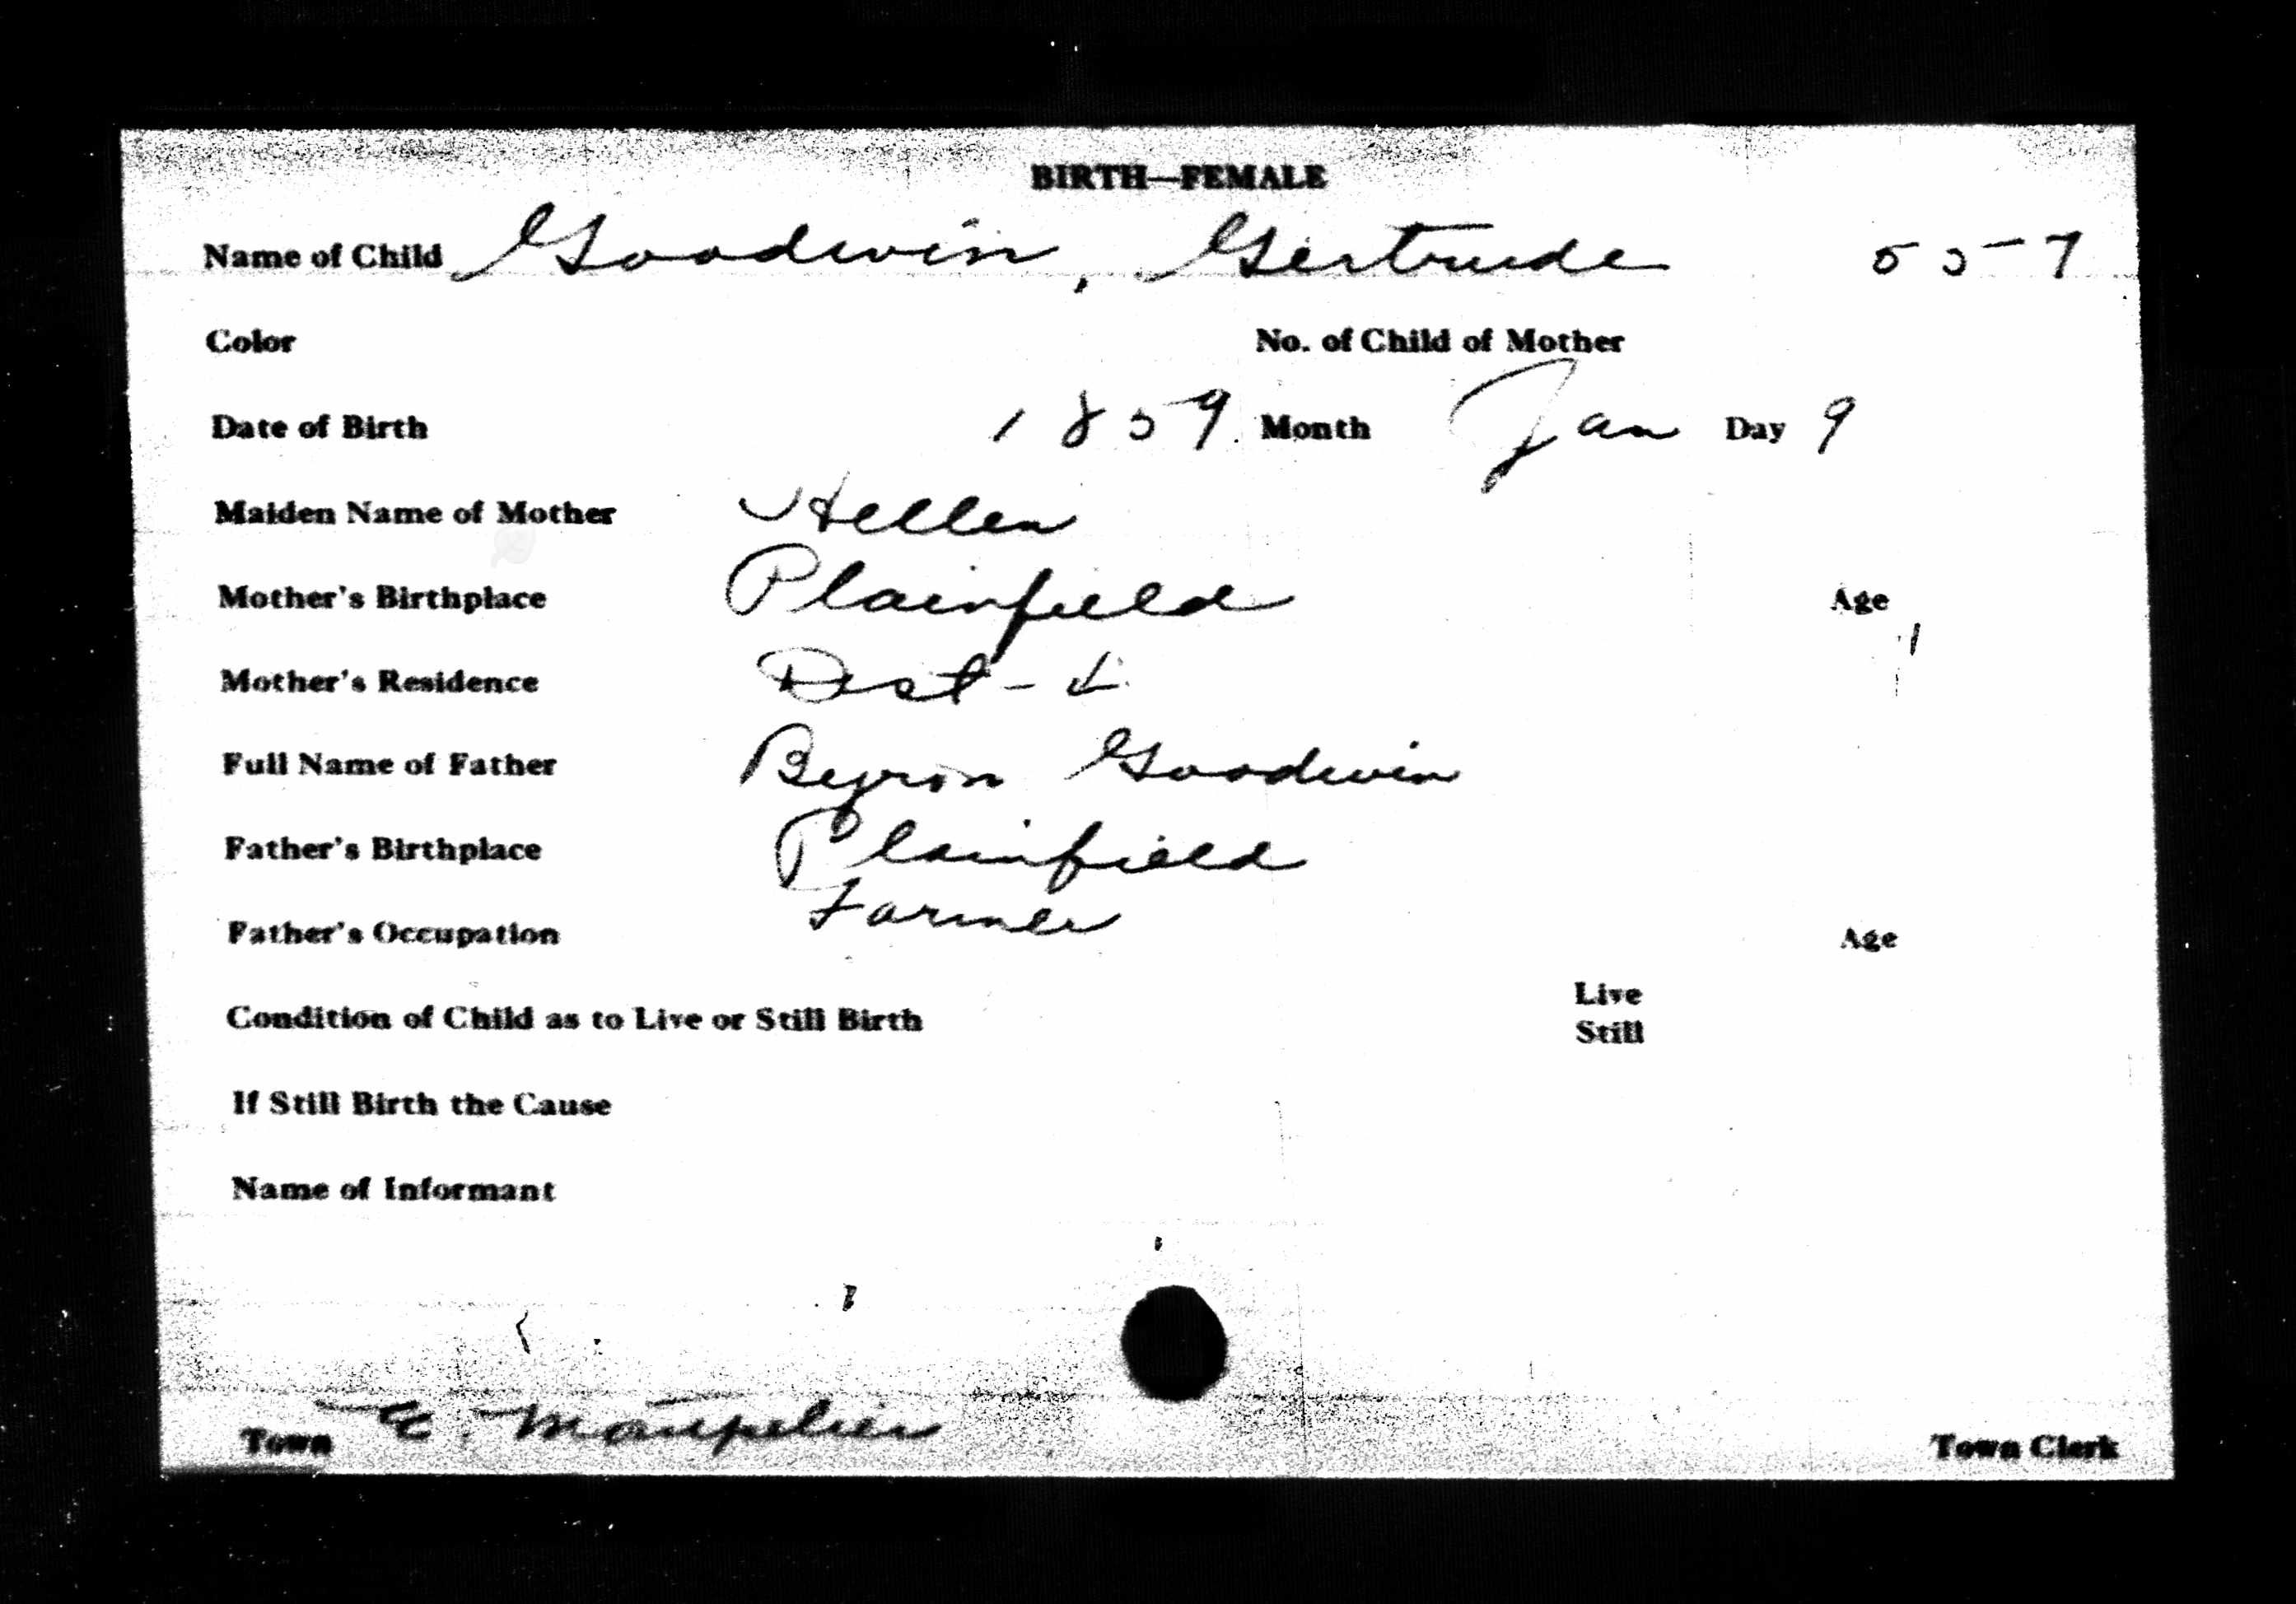 BIRTH—FEMALE
Name of Child Goodwin, Gertrude 557
Color No. of Child of Mother
Date of Birth 1859 Month Jan Day 9
Maiden Name of Mother Hellen
Mother's Birthplace Plainfield Age
Mother's Residence Dist -
Full Name of Father Byron Goodwin
Father's Birthplace Plainfield
Father's Occupation Farmer Age
Condition of Child as to Live or Still Birth Live
Still
If Still Birth the Cause
Name of Informant
Town E. Montpelier Town Clerk